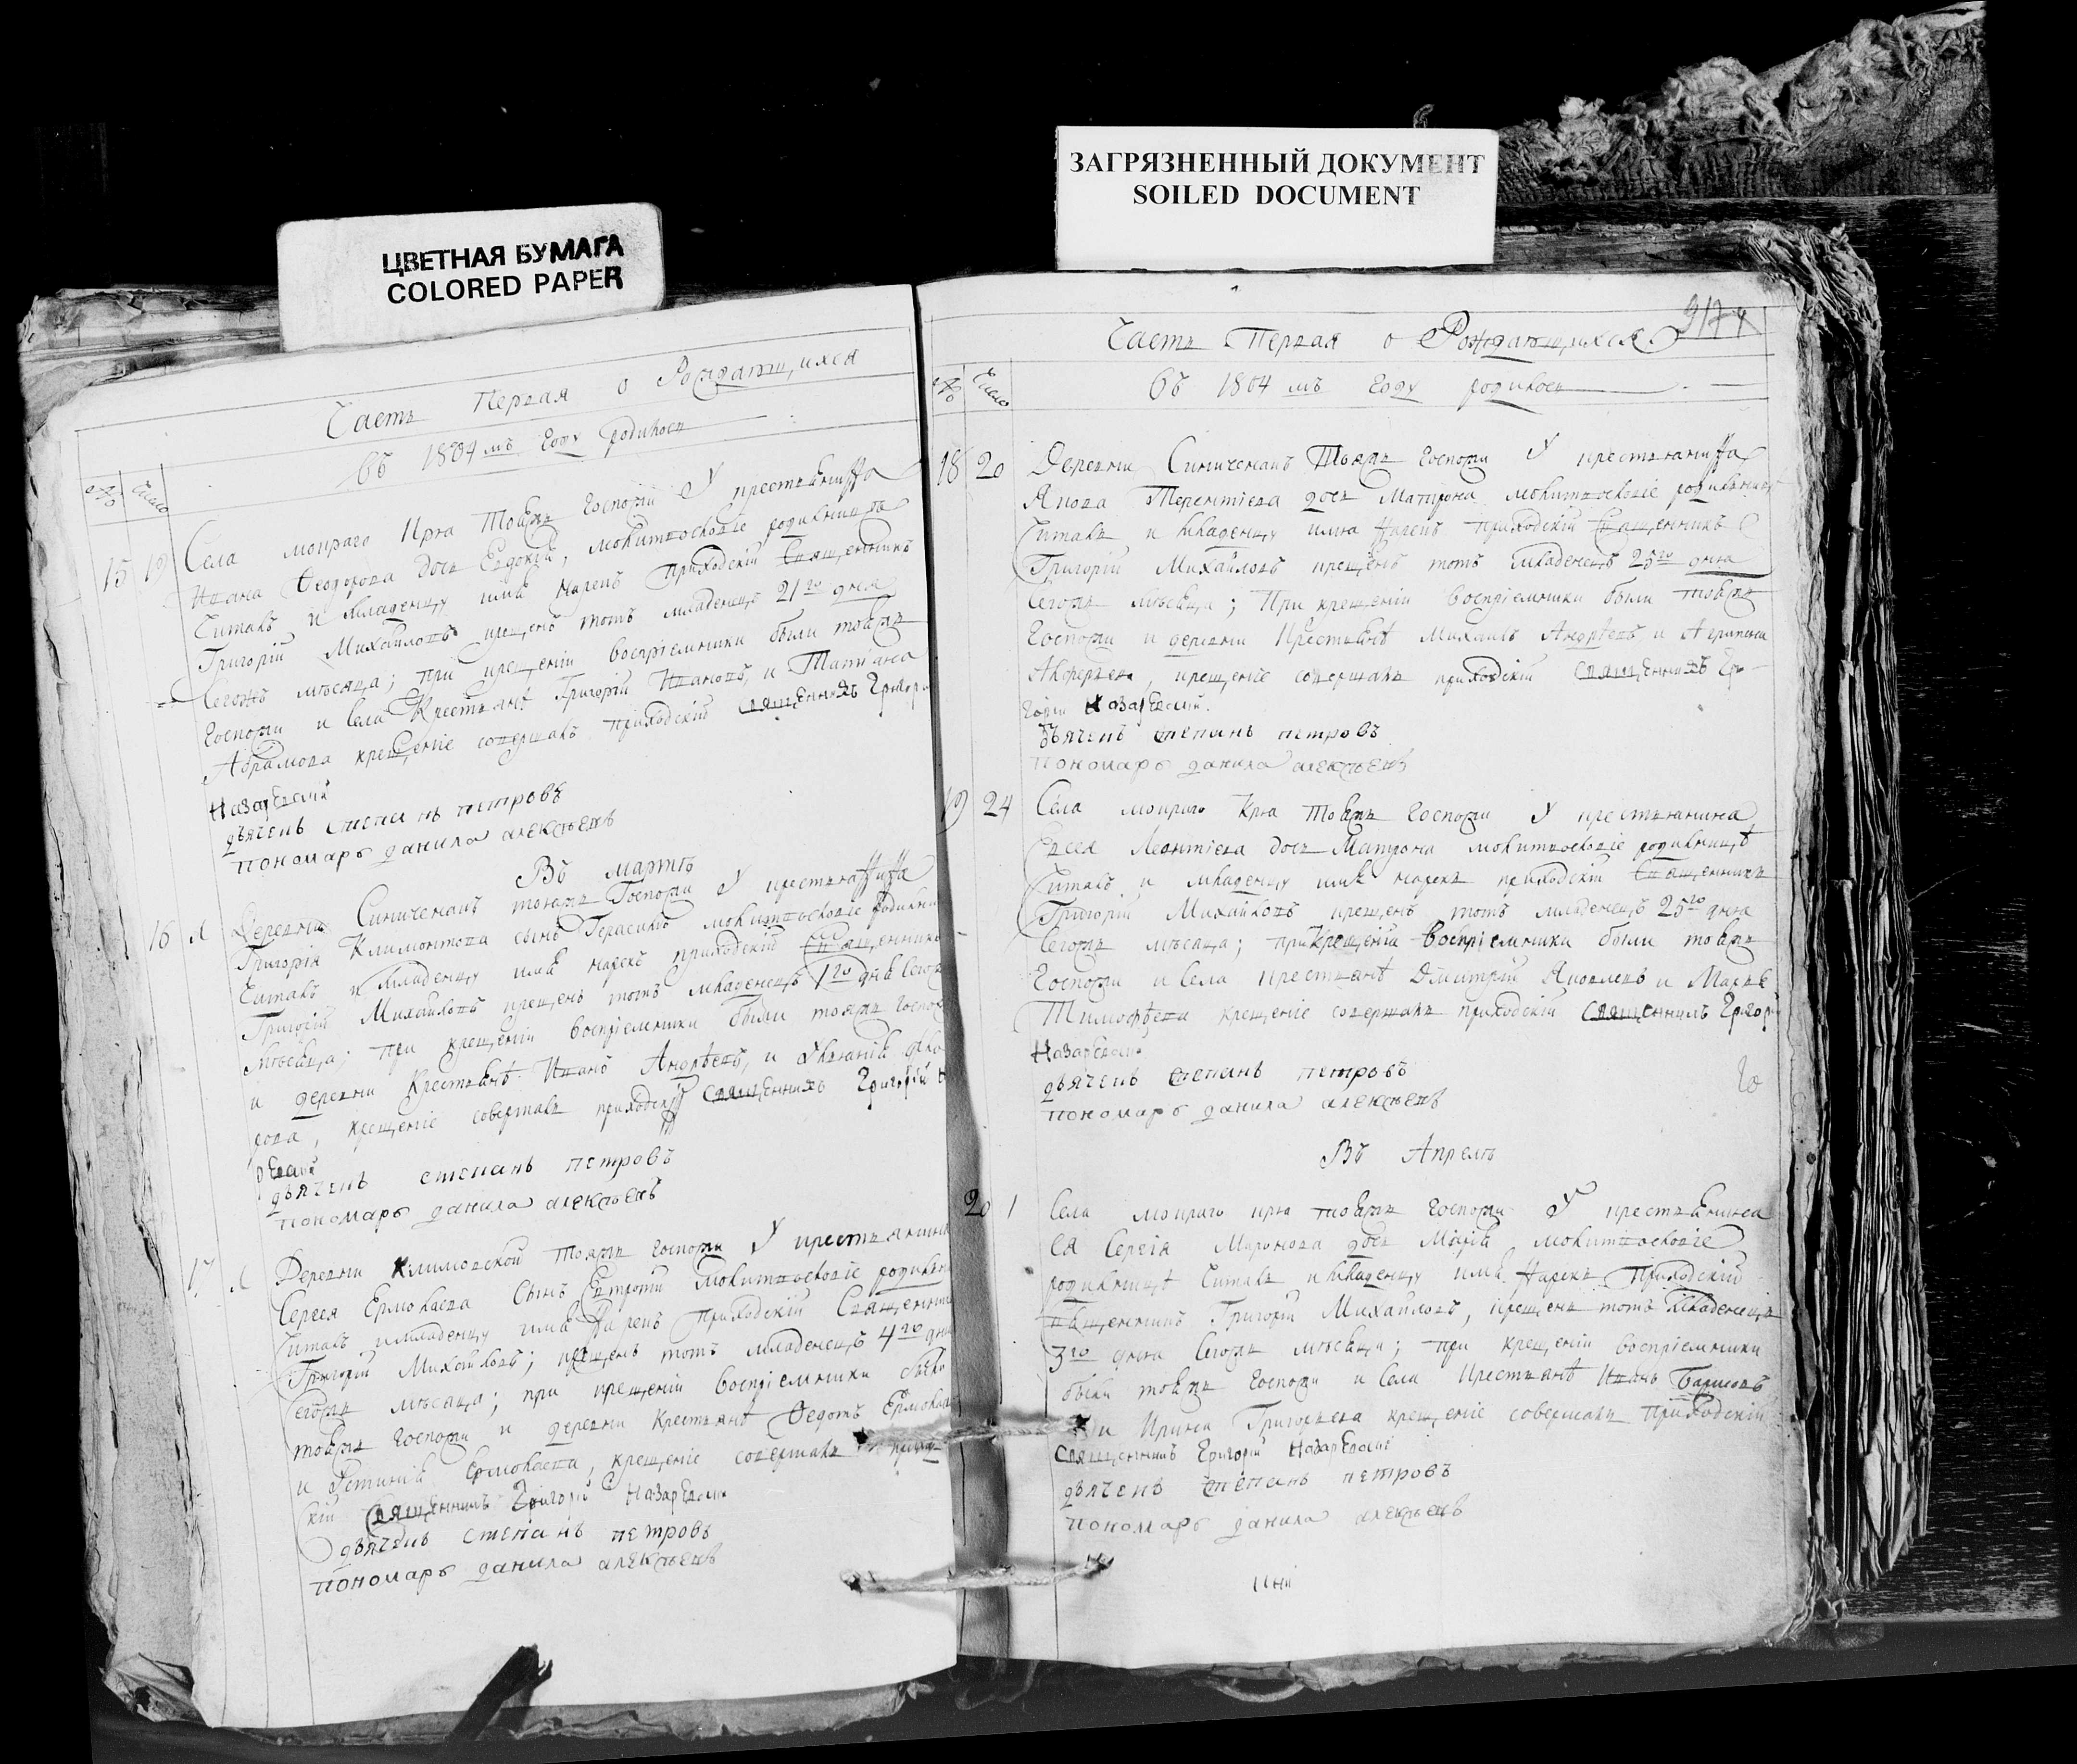 ЗАГРЯЗНЕННЫЙ ДОКУМЕНТ
SOILED DOCUMENT
ЦВЕТНАЯ БУМАГА
COLORED PAPER
Часть Первая о Рождающихся
Въ 1804 мъ Году родилось
№ Число
15 19 Села мокраго Села Господи У крестьянина
Ивана Феодорова дочь Евдокия, молитвословіе родильнице
Читалъ и младенцу имя нарекъ приходскій Священникъ
Григорій Михайловъ крещенъ тотъ младенецъ 21 го дня
Сегожъ мѣсяца; при крещеніи воспріемники были тояжъ
Госпожи и Села Крестьянѣ Григорій Ивановъ, и Татіана
Абрамова крещеніе совершалъ приходскій священникъ Григори
Назаревский
дьячекъ степанъ петровъ
пономарь данила алексѣевъ
Въ мартѣ
16 Деревни тояжъ Госпожи У крестьянина
Григорія Климонтова сынъ Герасимъ молитвословіе родильни
Читалъ и младенцу имя нарекъ приходскій Священникъ
Григорій Михайловъ крещенъ тотъ младенецъ 1 го дня Сего
мѣсяца; при крещеніи воспріемники были тояжъ Госпо
и деревни Крестьянѣ Иванъ Андрѣевъ, и
крещеніе совершалъ приходскій священникъ Григорій
дьячекъ степанъ петровъ
пономарь данила алексѣевъ
17 Деревни Климовской Тояжъ Госпожи У крестьянина
Сергея Ермолаева Сынъ молитвословіе родильни
Читалъ и младенцу имя Нарекъ приходскій Священни
Григорій Михайловъ; крещенъ тотъ младенецъ 4 го дня
Сегожъ мѣсяца; при крещеніи воспріемники были
тояжъ Госпожи и деревни Крестьянѣ Федотъ Ермолае
и Устинія Ермолаева, крещеніе совершалъ приход
скій Священникъ Григорій Назаревски
дьячекъ степанъ петровъ
пономарь данила алексѣевъ
Часть Первая о Рождающихся
Въ 1804 мъ Году родилось
№ Число
18 20 Деревни Тояжъ Госпожи У крестьянина
Якова Терентіева дочь Матрона молитвословіе родильницѣ
Читалъ и младенцу имя Нарекъ приходскій Священникъ
Григорій Михайловъ крещенъ тотъ младенецъ 25 го дня
Сегожъ мѣсяца; При крещеніи воспріемники были тояжъ
Госпожи и деревни Крестьянѣ Михаилъ Андрѣевъ и Агрипина
крещеніе совершалъ приходскій священникъ Гри
горій Назаревский.
дьячекъ степанъ петровъ
пономарь данила алексѣевъ
19 24 Села мокраго тояжъ Госпожи У крестьянина
Леонтіева дочь Матрона молитвословіе родильницѣ
Читалъ и младенцу имя нарекъ приходскій Священникъ
Григорій Михайловъ крещенъ тотъ младенецъ 25 го дня
Сегожъ мѣсяца; при крещеніи воспріемники были тояжъ
Госпожи и Села Крестьянѣ Дмитрій Яковлевъ и Марья
Тимофѣева крещеніе совершалъ приходскій священникъ Григор
Назаревски
дьячекъ степанъ петровъ
пономарь данила алексѣевъ
Въ Апрелѣ
20 1 Села мокраго тояжъ Госпожи У крестьянина
Сергія Миронова дочь Марія молитвословіе
родильницѣ Читалъ и младенцу имя Нарекъ Приходскій
Священникъ Григорій Михайловъ, крещенъ тотъ младенецъ
3 го дня Сегожъ мѣсяца; при крещеніи воспріемники
были тояжъ Госпожи и Села Крестьянѣ Иванъ Борисовъ
и Ирина Григорьева крещеніе совершалъ Приходскій
священникъ Григорій Назаревский
дьячекъ степанъ петровъ
пономарь данила алексѣевъ